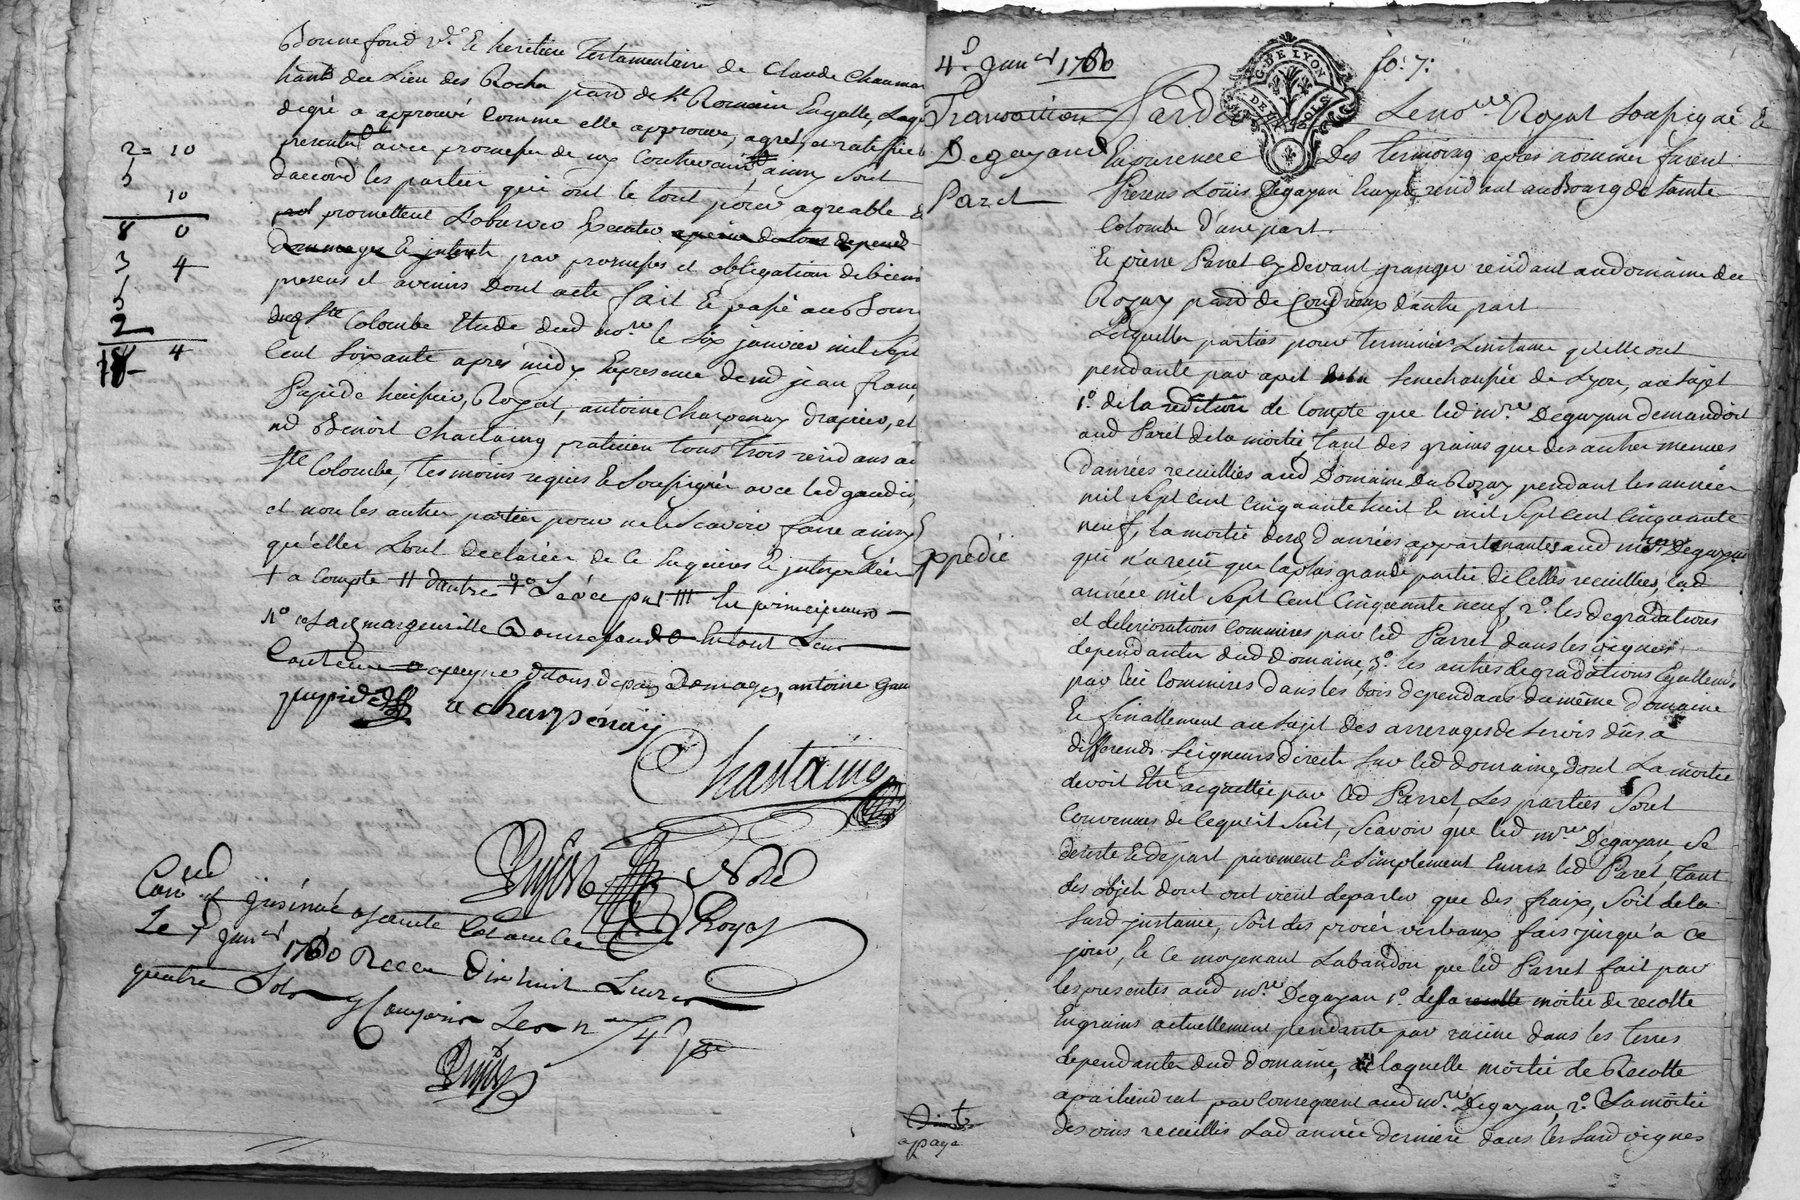 Bonnefond vve. et heritiere Testamentaire de Claude Chaumar
hants du Lieu des Roches paroisse de St. Romain
degré a approuvé Comme elle approuve, agrée, et ratifie
presente avec promesse de ny Contrevenir ainsy sont
daccord les parties qui ont le tout pour agreable
promettent Lobserver Executer a peine de tous depends
dommages et interets par promesses et obligation de biens
presens et avenirs Dont acte fait et passé au Bour
dud Ste Colombe Etude dud nore. le Six janvier mil Sept
Cent Soixante apres midy En presence de jean fran
Pupied huissier, Royal, antoine Charpenay drapier, et
Benoit Chastaing praticien tous trois residans au
Ste Colombe, Temoins requis et Soussignés avec led gaudin,
et non les autres parties pour ne le Scavoir faire ainsy
qu'elles L'ont declarées de Ce Enquises et interpellées
+ a Compte ++ d'autre
margueritte Bonnefond
antoine gau
pupied a charpenay
Chastaing
Noré
Royal
Con.lé et jnsinué a sainte Colombe
Le 7 janer 1760 Receu Dix huit Livres
quatre Sols
2= 10
5
10
8 0
3 4
2
18 4
4e. janer 1760
fo: 7:
G. DE LYON
DEUX SOLS
Transaction
Degayand
Paret
Pardevant Le nore. Royal Soussigné et
En presence Des Temoins apres nommés furent
Presens Loüis Degayan Ecuyer residant au Bourg de Sainte
Colombe d'une part
Et pierre Parret cy devant granger residant au domaine du
Rozay paroisse de Condrieux d'autre part
Lesquelles parties pour Terminer L'instance qu'elle ont
pendante par apel en la Senechaussée de Lyon, au Sujet
1o. de la reddition de Compte que led mre. Degayan demandoit
aud Paret de la moitié, Tant des grains que des autres menues
danrées recuillies aud Domaine du Rozay pendant les années
mil Sept Cent Cinquante huit et mil Sept Cent Cinquante
neuf, la moitié desd danrées appartenantes aud mre. Degayan
qui n'a receu que la plus grande partie de Celles recuillies, lad
année mil Sept Cent Cinquante neuf, 2o. les degradations
et deteriorations Commises par led Parret dans les vignes
dependantes dud domaine, 3o. les autres degradations Egallement
par lui Commises Dans les bois dependans du même Domaine
Et finallement au Sujet Des arrerages de Servis dûs a
differends Seigneurs directs Sur led domaine, dont La moitié
devoit Etre acquittée par led Parret, Les parties Sont
Convenues de Ce qui Suit, Scavoir que led mre. Degayan, Se
desiste et depart purement et Simplement Envers led Paret, tant
des objets dont on vient de parler que des fraix, Soit de la
Susd jnstance, Soit des procés verbaux faits jusqu'a Ce
jour, Et Ce moyenant Labandon que led Parret fait par
les presentes aud mre. Degayan 1o. de la moitié de recolte
En grains actuellement pendante par racine dans les terres
dependantes dud domaine, laquelle moitié de Recolte
apartiendrat par Consequent aud mre. Degayan, 2o. La moitié
des vins recuillis Lad année derniere dans les Susd vignes
Expedié
a payé